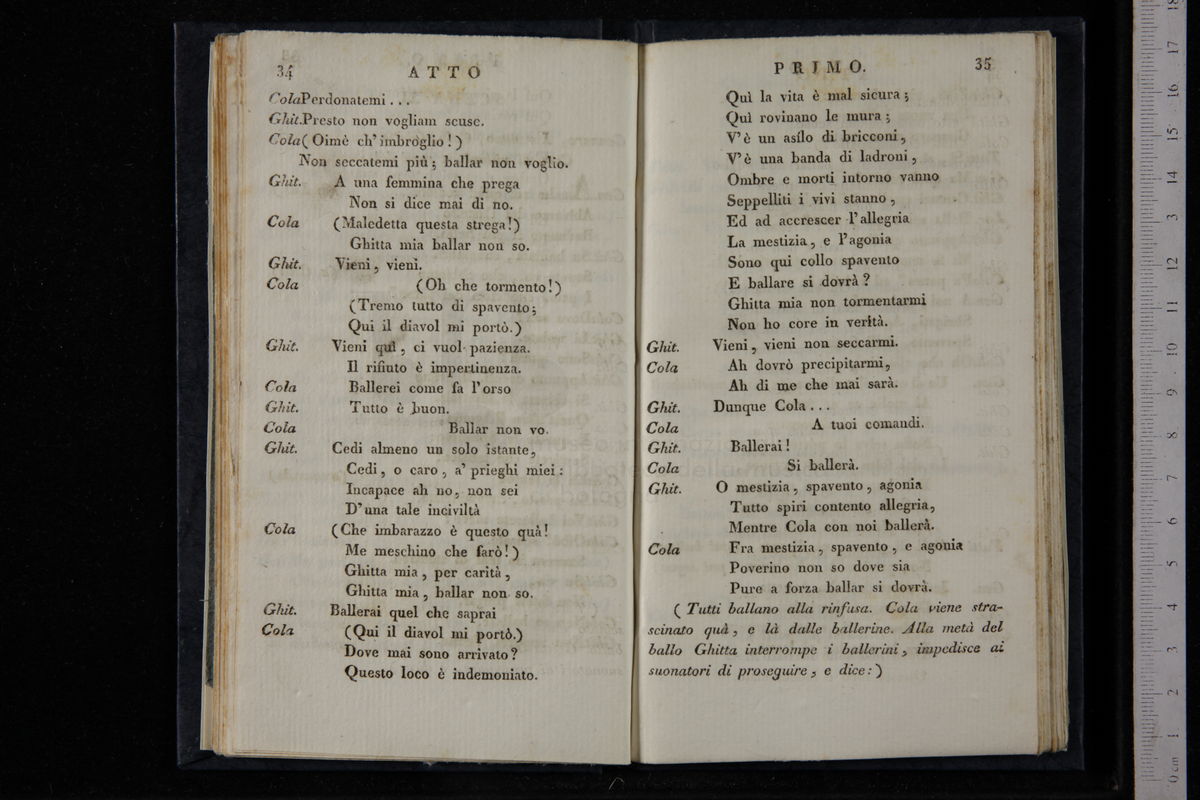 34 ATTO
Cola Perdonatemi . . .
Ghit. Presto non vogliam scuse.
Cola ( Oimè ch' imbroglio ! )
Non seccatemi più ; ballar non voglio.
Ghit. A una femmina che prega
Non si dice mai di no.
Cola (Maledetta questa strega!)
Ghitta mia ballar non so.
Ghit. Vieni, vieni.
Cola (Oh che tormento!)
(Tremo tutto di spavento;
Qui il diavol mi portò.)
Ghit. Vieni quì, ci vuol pazienza.
Il rifiuto è impertinenza.
Cola Ballerei come fa l'orso
Ghit. Tutto è buon.
Cola Ballar non vo.
Ghit. Cedi almeno un solo istante,
Cedi, o caro, a' prieghi miei :
Incapace ah no, non sei
D'una tale inciviltà
Cola (Che imbarazzo è questo quà!
Me meschino che farò!)
Ghitta mia, per carità,
Ghitta mia, ballar non so.
Ghit. Ballerai quel che saprai
Cola (Qui il diavol mi portò.)
Dove mai sono arrivato?
Questo loco è indemoniato.
PRIMO. 35
Quì la vita è mal sicura ;
Quì rovinano le mura ;
V'è un asílo di bricconi,
V'è una banda di ladroni,
Ombre e morti intorno vanno
Seppelliti i vivi stanno,
Ed ad accrescer l'allegria
La mestizia, e l'agonia
Sono qui collo spavento
E ballare si dovrà ?
Ghitta mia non tormentarmi
Non ho core in verità.
Ghit. Vieni, vieni non seccarmi.
Cola Ah dovrò precipitarmi,
Ah di me che mai sarà.
Ghit. Dunque Cola . . .
Cola A tuoi comandi.
Ghit. Ballerai !
Cola Si ballerà.
Ghit. O mestizia, spavento, agonia
Tutto spiri contento allegria,
Mentre Cola con noi ballerà.
Cola Fra mestizia, spavento, e agonia
Poverino non so dove sia
Pure a forza ballar si dovrà.
( Tutti ballano alla rinfusa. Cola viene stra-
scinato quà, e là dalle ballerine. Alla metà del
ballo Ghitta interrompe i ballerini, impedisce ai
suonatori di proseguire, e dice : )
0 cm 1 2 3 4 5 6 7 8 9 10 11 12 13 14 15 16 17 18